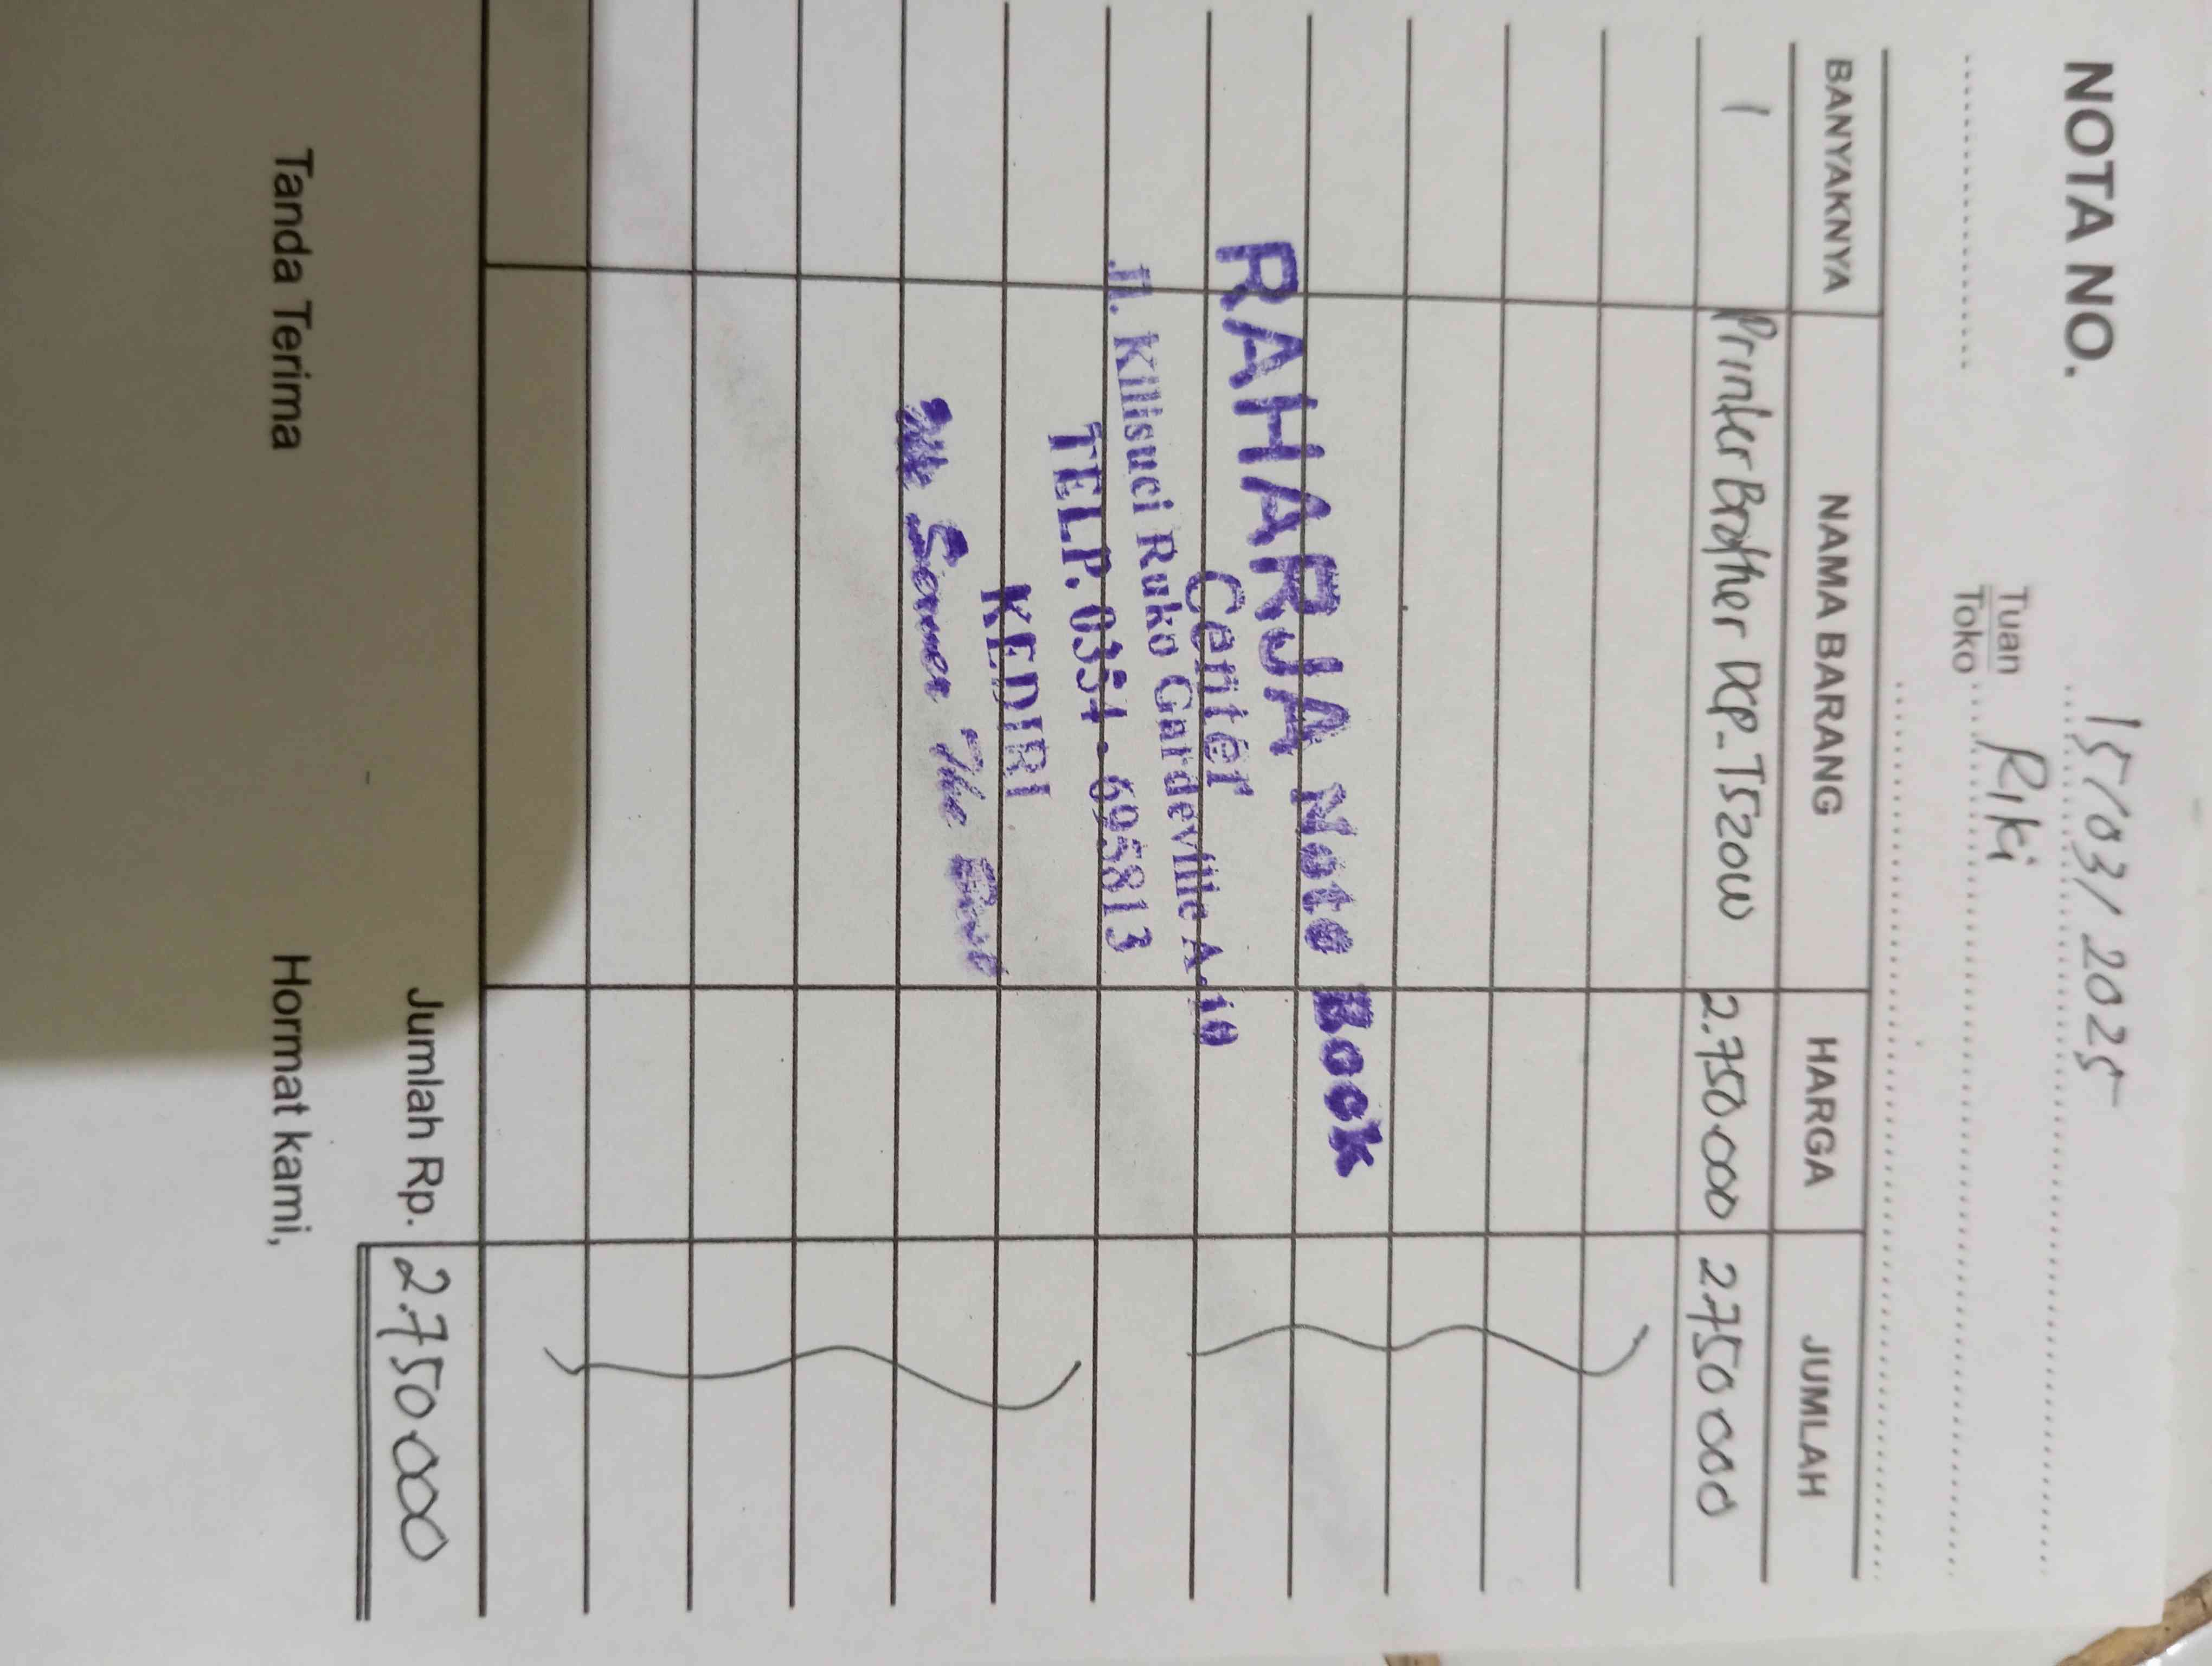 15/03/2025
NOTA NO.
Tuan
Toko
Riki
BANYAKNYA NAMA BARANG HARGA JUMLAH
1 Printer Brother DCP-T520W 2.750.000 2.750.000
RAHARJA Note Book
Center
Jl. Kilisuci Ruko Gardeville A.10
TELP. 0354 - 695813
KEDIRI
The
Jumlah Rp. 2.750.000
Tanda Terima Hormat kami,